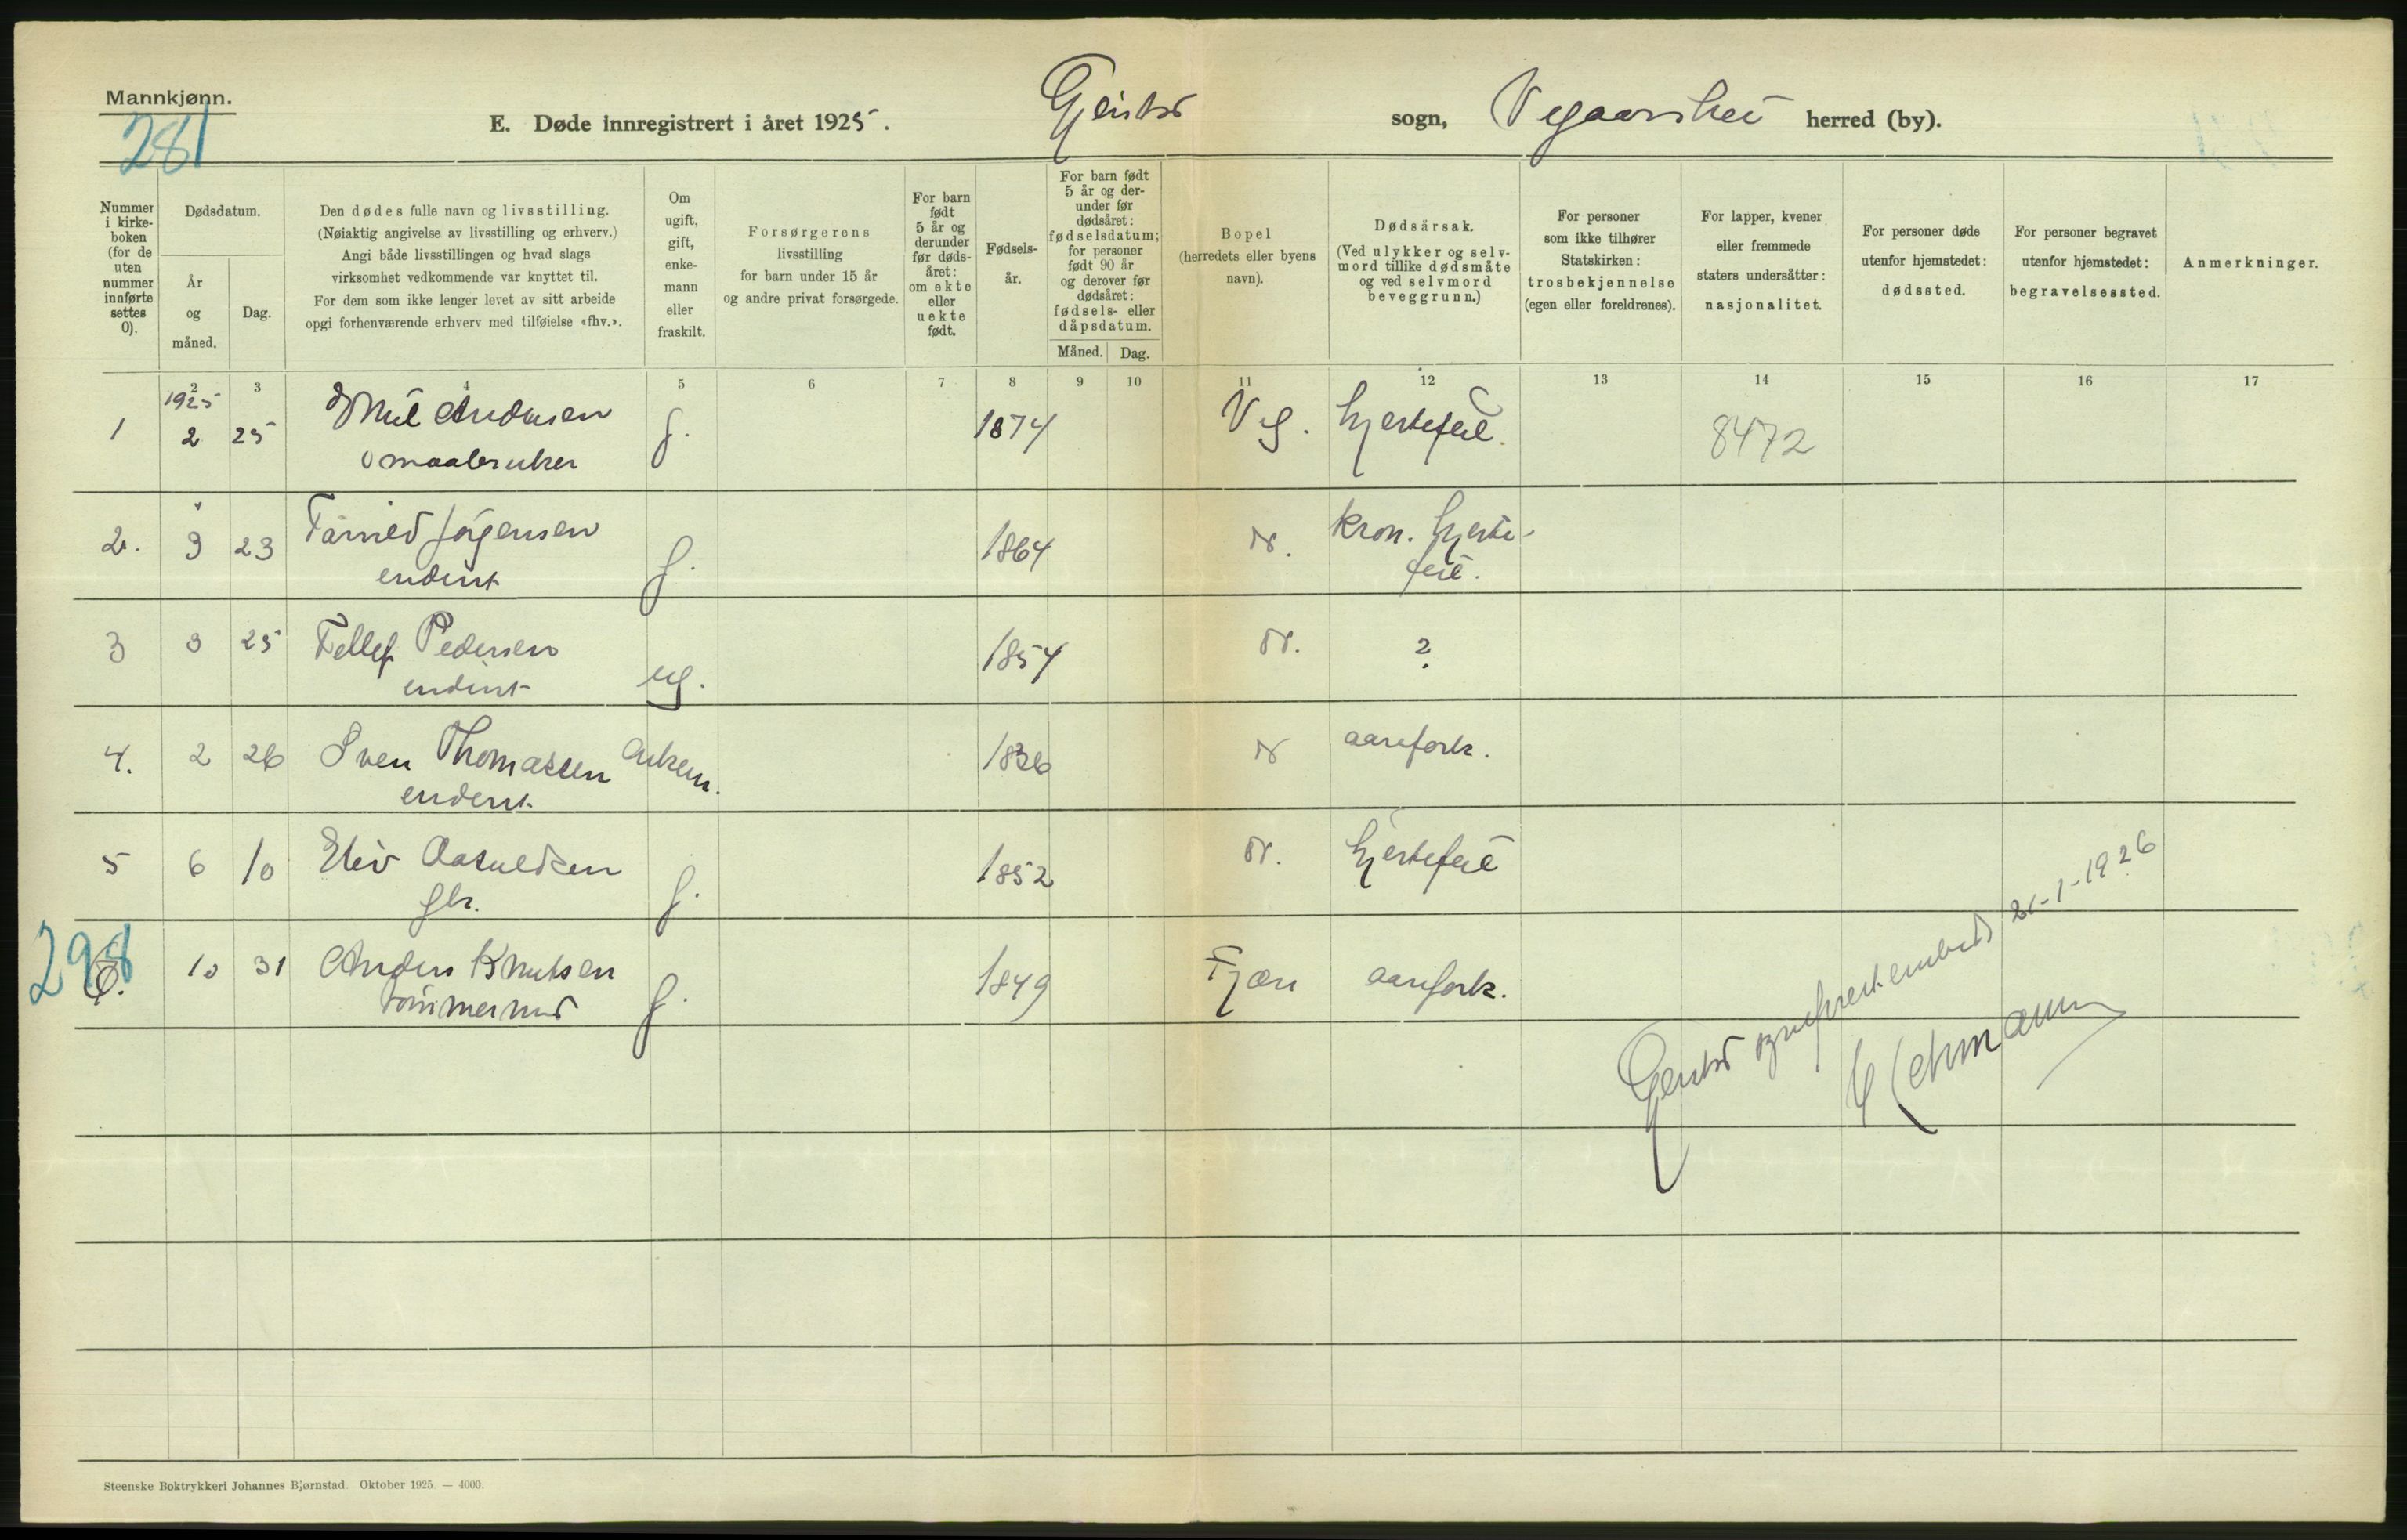 Mannkjønn.
281
E. Døde innregistrert i året 1925. Gjerstad sogn, Vegaarshei herred (by).
Nummer i kirke-boken (for de uten nummer innførte settes 0).
Dødsdatum.
År og måned.
Dag.
Den dødes fulle navn og livsstilling.
(Nøiaktig angivelse av livsstilling og erhverv.)
Angi både livsstillingen og hvad slags
virksomhet vedkommende var knyttet til.
For dem som ikke lenger levet av sitt arbeide
opgi forhenværende erhverv med tilføielse «fhv.».
Om ugift, gift, enke-mann eller fraskilt.
Forsørgerens
livsstilling
for barn under 15 år
og andre privat forsørgede.
For barn født 5 år og derunder før døds-året: om ekte eller uekte født.
Fødsels-år.
For barn født 5 år og der-under før dødsåret: fødselsdatum; for personer født 90 år og derover før dødsåret: fødsels- eller dåpsdatum.
Måned. Dag.
Bopel
(herredets eller byens
navn).
Dødsårsak.
(Ved ulykker og selv-
mord tillike dødsmåte
og ved selvmord
beveggrunn.)
For personer
som ikke tilhører
Statskirken:
trosbekjennelse
(egen eller foreldrenes).
For lapper, kvener
eller fremmede
staters undersåtter:
nasjonalitet.
For personer døde
utenfor hjemstedet:
dødssted.
For personer begravet
utenfor hjemstedet:
begravelsessted.
Anmerkninger.
2 3 4 5 6 7 8 9 10 11 12 13 14 15 16 17
1925
1 2 25 Emil Andersen g. 1874 Veg. hjertefeil. 8472
smaabruker
2. 3 23 Jørgensen g. 1864 kron. hjerte-
feil.
3 3 25 Tellef Pedersen ug. 1854 ?
4. 2 26 Sven Thomassen enkem. 1836 aarefork.
5 6 10 Eliv Aasuldsen g. 1852 hjertefeil
gbr.
298
6. 10 31 Anders Knutsen g. 1849 Fjære aarefork.
tømmermd
Gjerstad sogneprestembede 21-1-1926
Steenske Boktrykkeri Johannes Bjørnstad. Oktober 1925. — 4000.